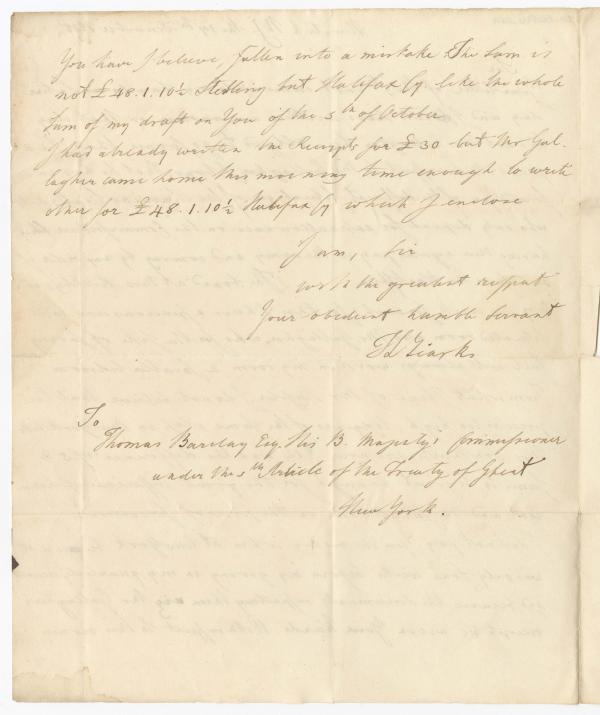 You have I believe, fallen into a mistake. The Sum is
not £48.1.10½ Sterling but Halifax Cy like the whole
Sum of my draft on You of the 5th of October
I had already written the Receipts for £30 but Mr Gal-
lagher came home this morning time enough to write
other for £48.1.10½ Halifax Cy which I enclose
I am, Sir
with the greatest respect
Your obedient humble Servant
Tiarks
To
Thomas Barclay Esq. His B. Majesty's Commissioner
under the 5th Article of the Treaty of Ghent
New York.